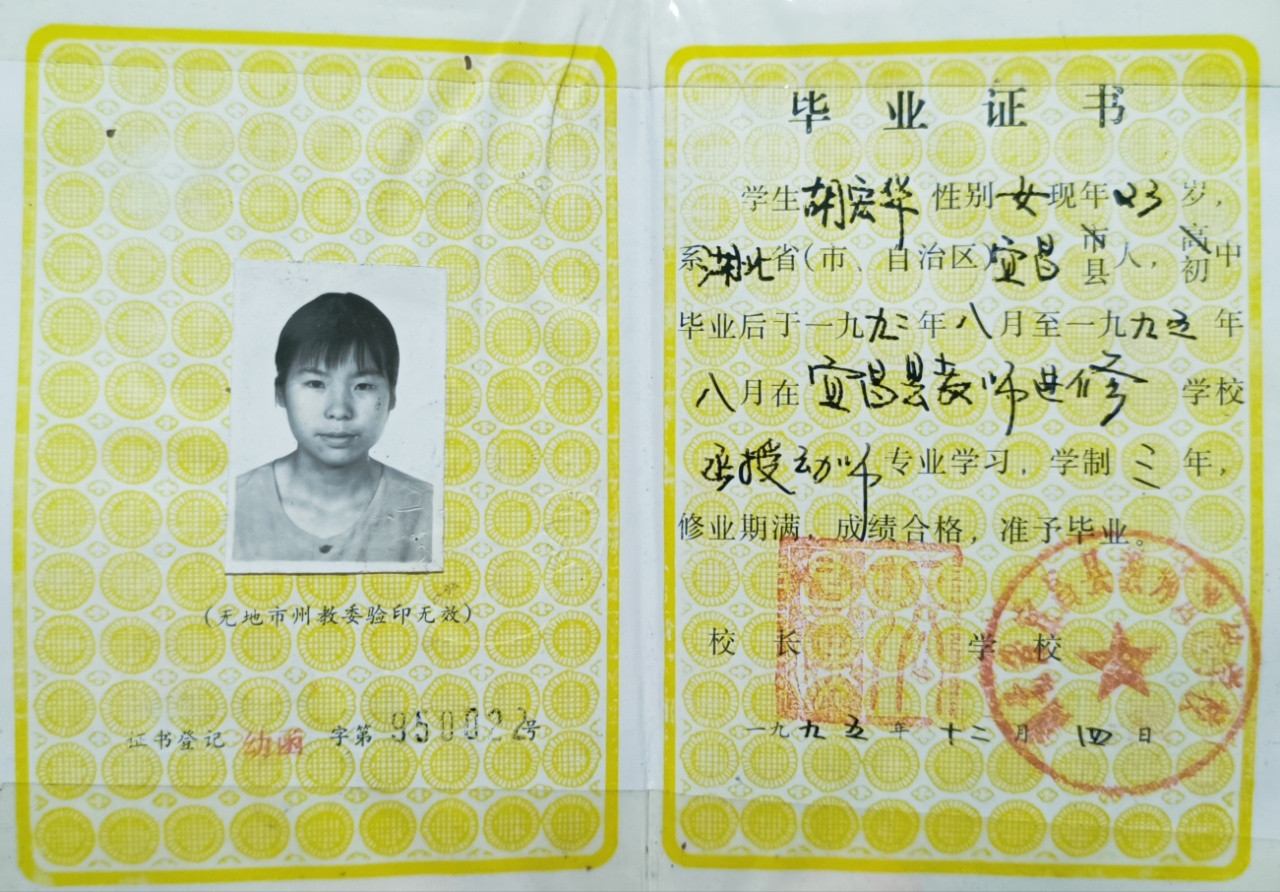 (无地市州教委验印无效)
证书登记 幼函 字第 950022 号
毕业证书
学生 胡宏华 性别 女 现年 23 岁,
系 湖北 省(市、自治区) 宜昌 市县 人, 高初 中
毕业后于一九九二年八月至一九九五年
八月在 宜昌县教师进修 学校
函授幼师 专业学习, 学制 三 年,
修业期满, 成绩合格, 准予毕业。
校 长 学 校
一九九五年十二月四日